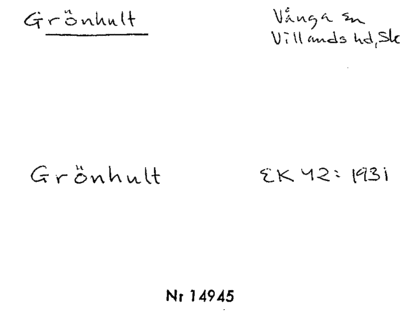 Grönhult
Vånga sn
Villands hd, Sk
Grönhult
EK 42: 1931
Nr 14945